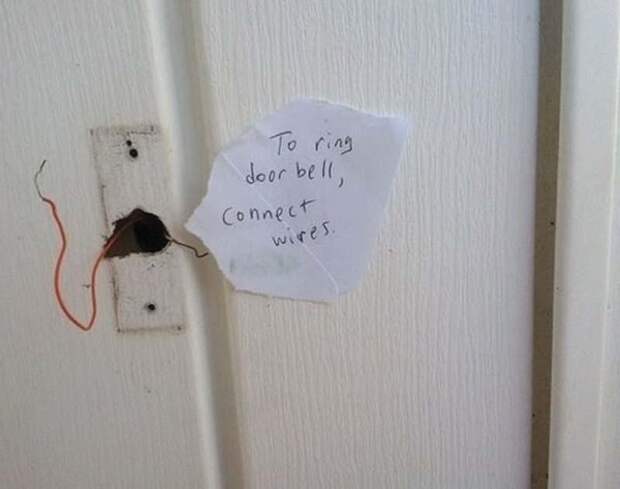 To ring
door bell,
Connect
wires.